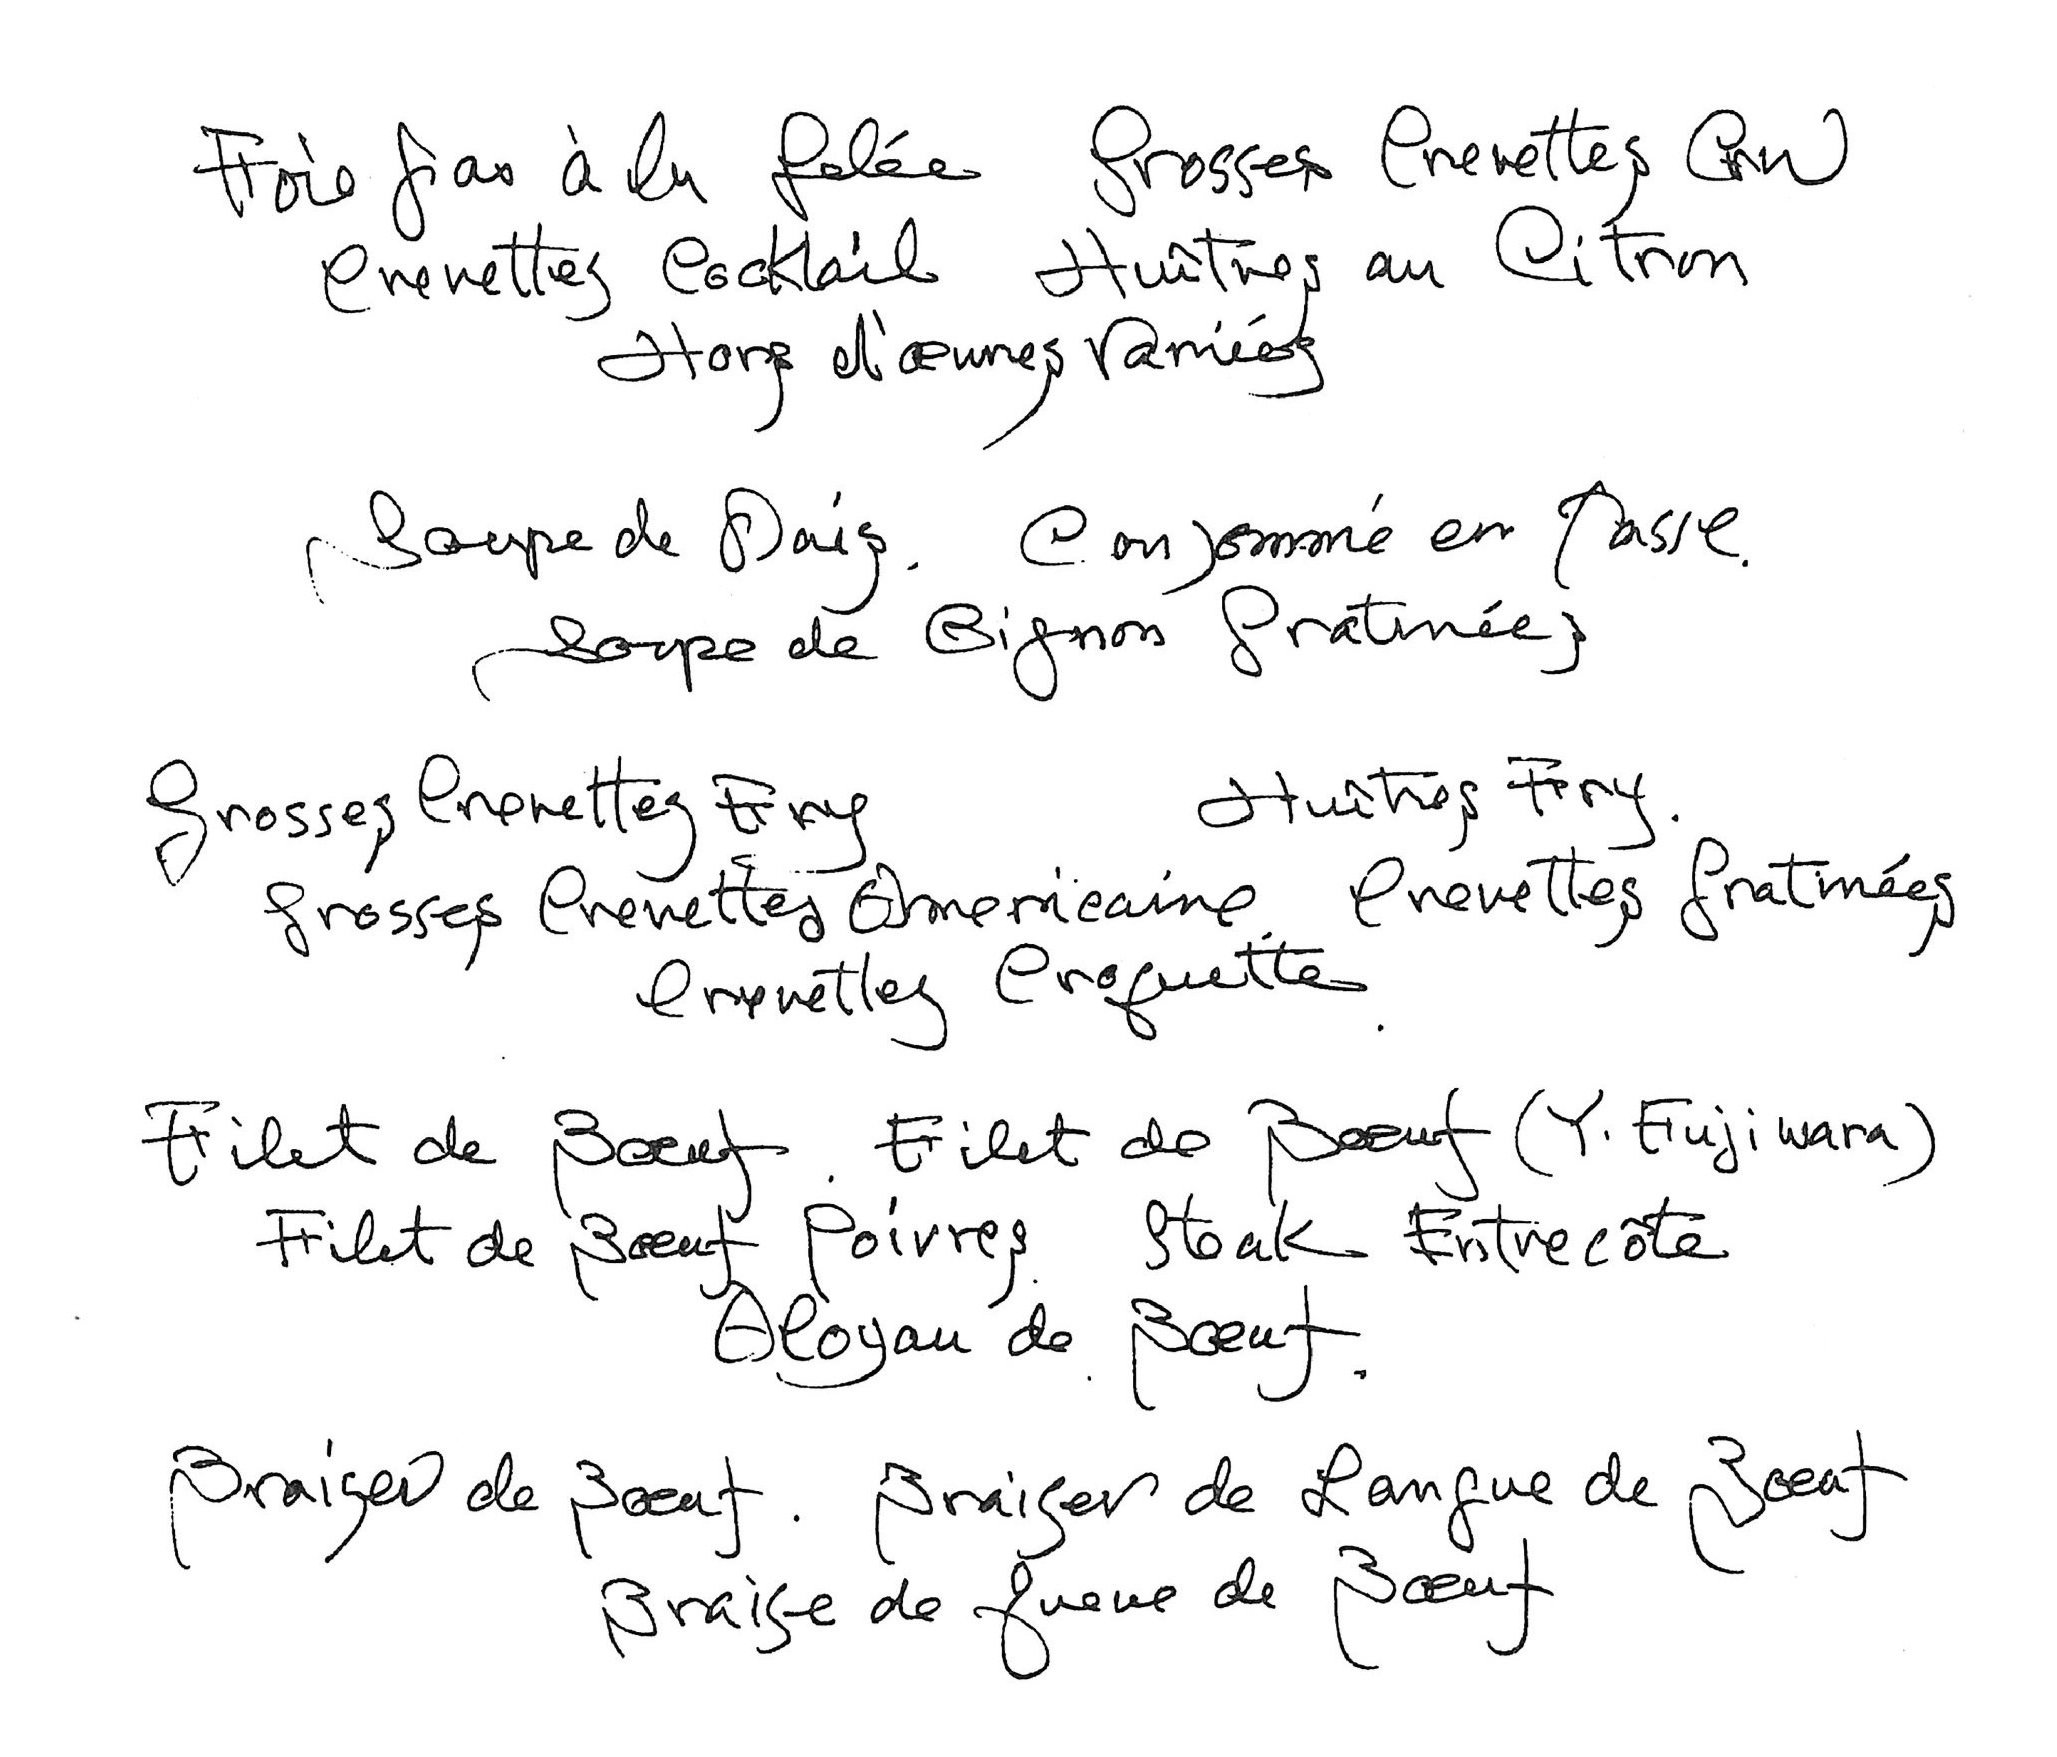 Foie gras à la gelée Grosses Crevettes Cru
Crevettes Cocktail Huîtres au Citron
Hors d'œuvres Variées
Soupe de Maïs. Consommé en Tasse.
Soupe de Oignon Gratinées
Grosses Crevettes Fry Huîtres Fry.
Grosses Crevettes Americaine Crevettes Gratinées
Crevettes Croquette.
Filet de Bœuf. Filet de Bœuf (Y. Fujiwara)
Filet de Bœuf Poivres. Steak Entrecôte
Aloyau de Bœuf.
Braiser de Bœuf. Braiser de Langue de Bœuf
Braise de Queue de Bœuf